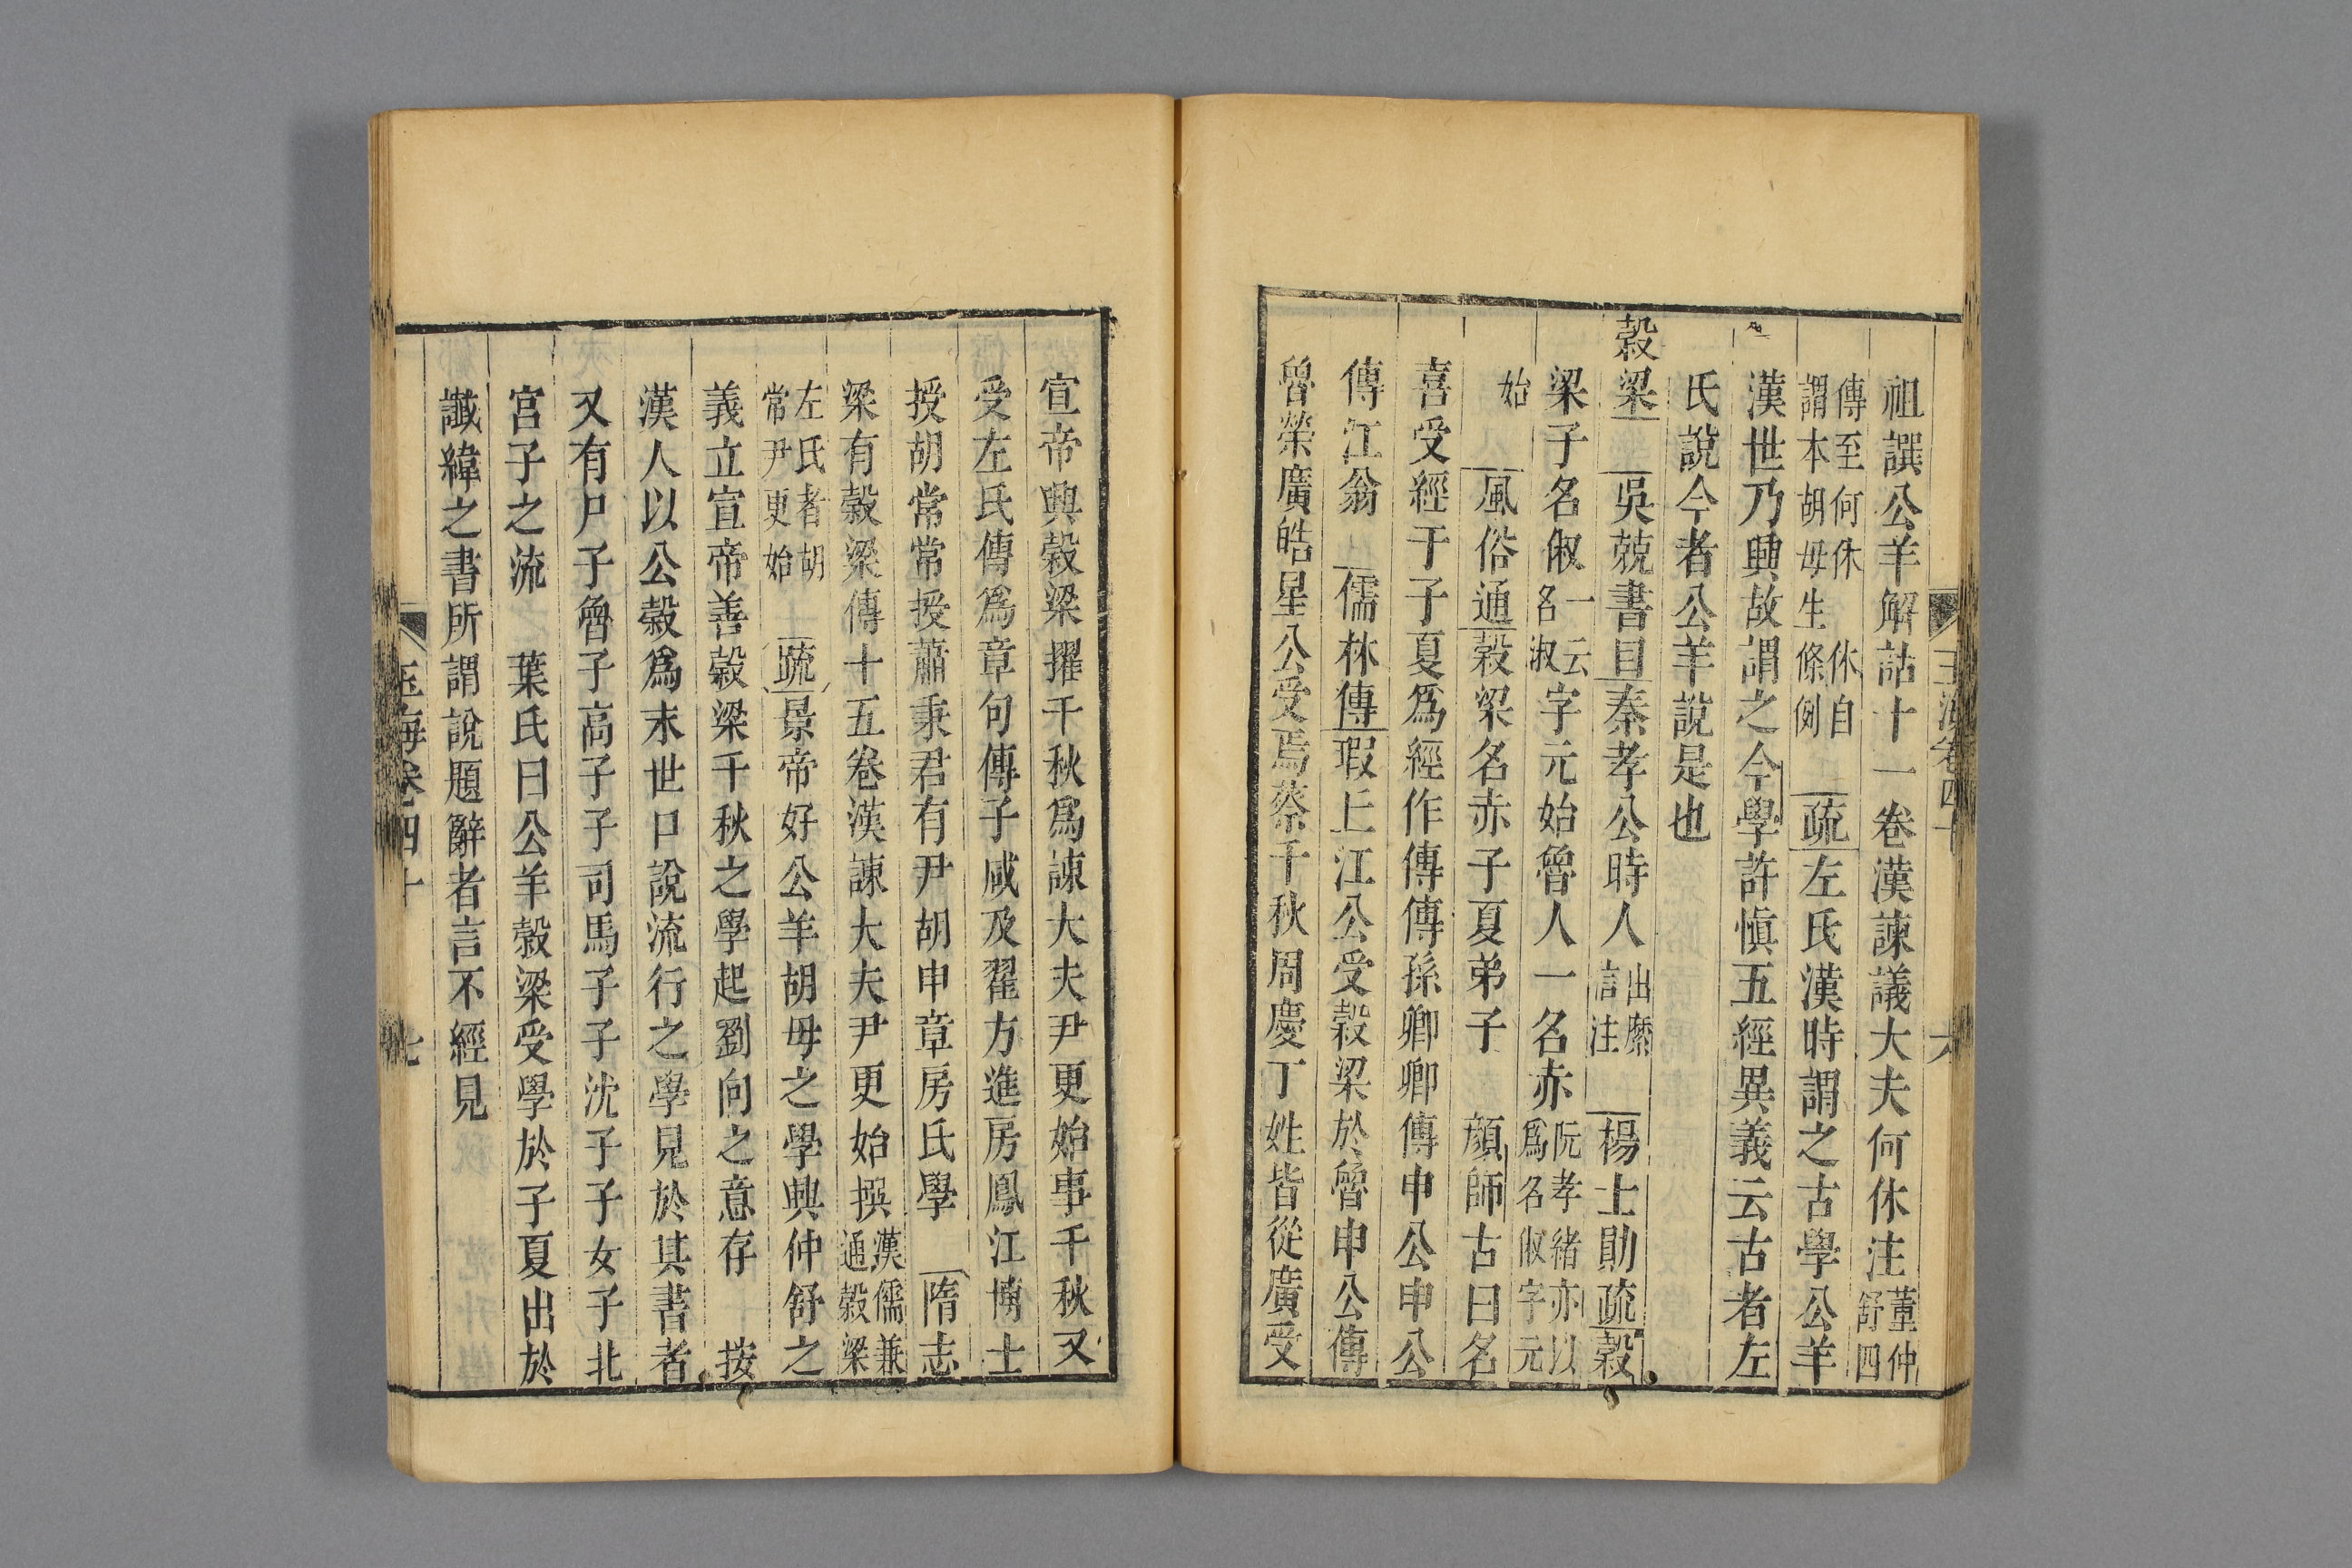 玉海卷四十
六
祖譔公羊解詁十一卷漢諫議大夫何休注董仲舒四
傳至何休 休自
謂本胡毋生條例
疏左氏漢時謂之古學公羊
漢世乃興故謂之今學許愼五經異義云古者左
氏說今者公羊說是也
穀梁 吳兢書目秦孝公時人出麋言注 楊士勛疏穀
梁子名俶一云名淑字元始魯人一名赤阮孝緒亦以爲名俶字元
始 風俗通穀梁名赤子夏弟子 顏師古曰名
喜受經于子夏爲經作傳傳孫卿卿傳申公申公
傳江翁 儒林傳瑕丘江公受穀梁於魯申公傳
魯榮廣皓星公受焉蔡千秋周慶丁姓皆從廣受
宣帝興穀梁擢千秋爲諫大夫尹更始事千秋又
受左氏傳爲章句傳子咸及翟方進房鳳江博士
授胡常常授蕭秉君有尹胡申章房氏學 隋志
梁有穀梁傳十五卷漢諫大夫尹更始撰漢儒兼通穀梁
左氏者胡常尹更始 疏景帝好公羊胡毋之學興仲舒之
義立宣帝善穀梁千秋之學起劉向之意存 按
漢人以公穀爲末世口說流行之學見於其書者
又有尸子魯子高子子司馬子子沈子子女子北
宮子之流 葉氏曰公羊穀梁受學於子夏出於
讖緯之書所謂說題辭者言不經見
玉海卷四十
七